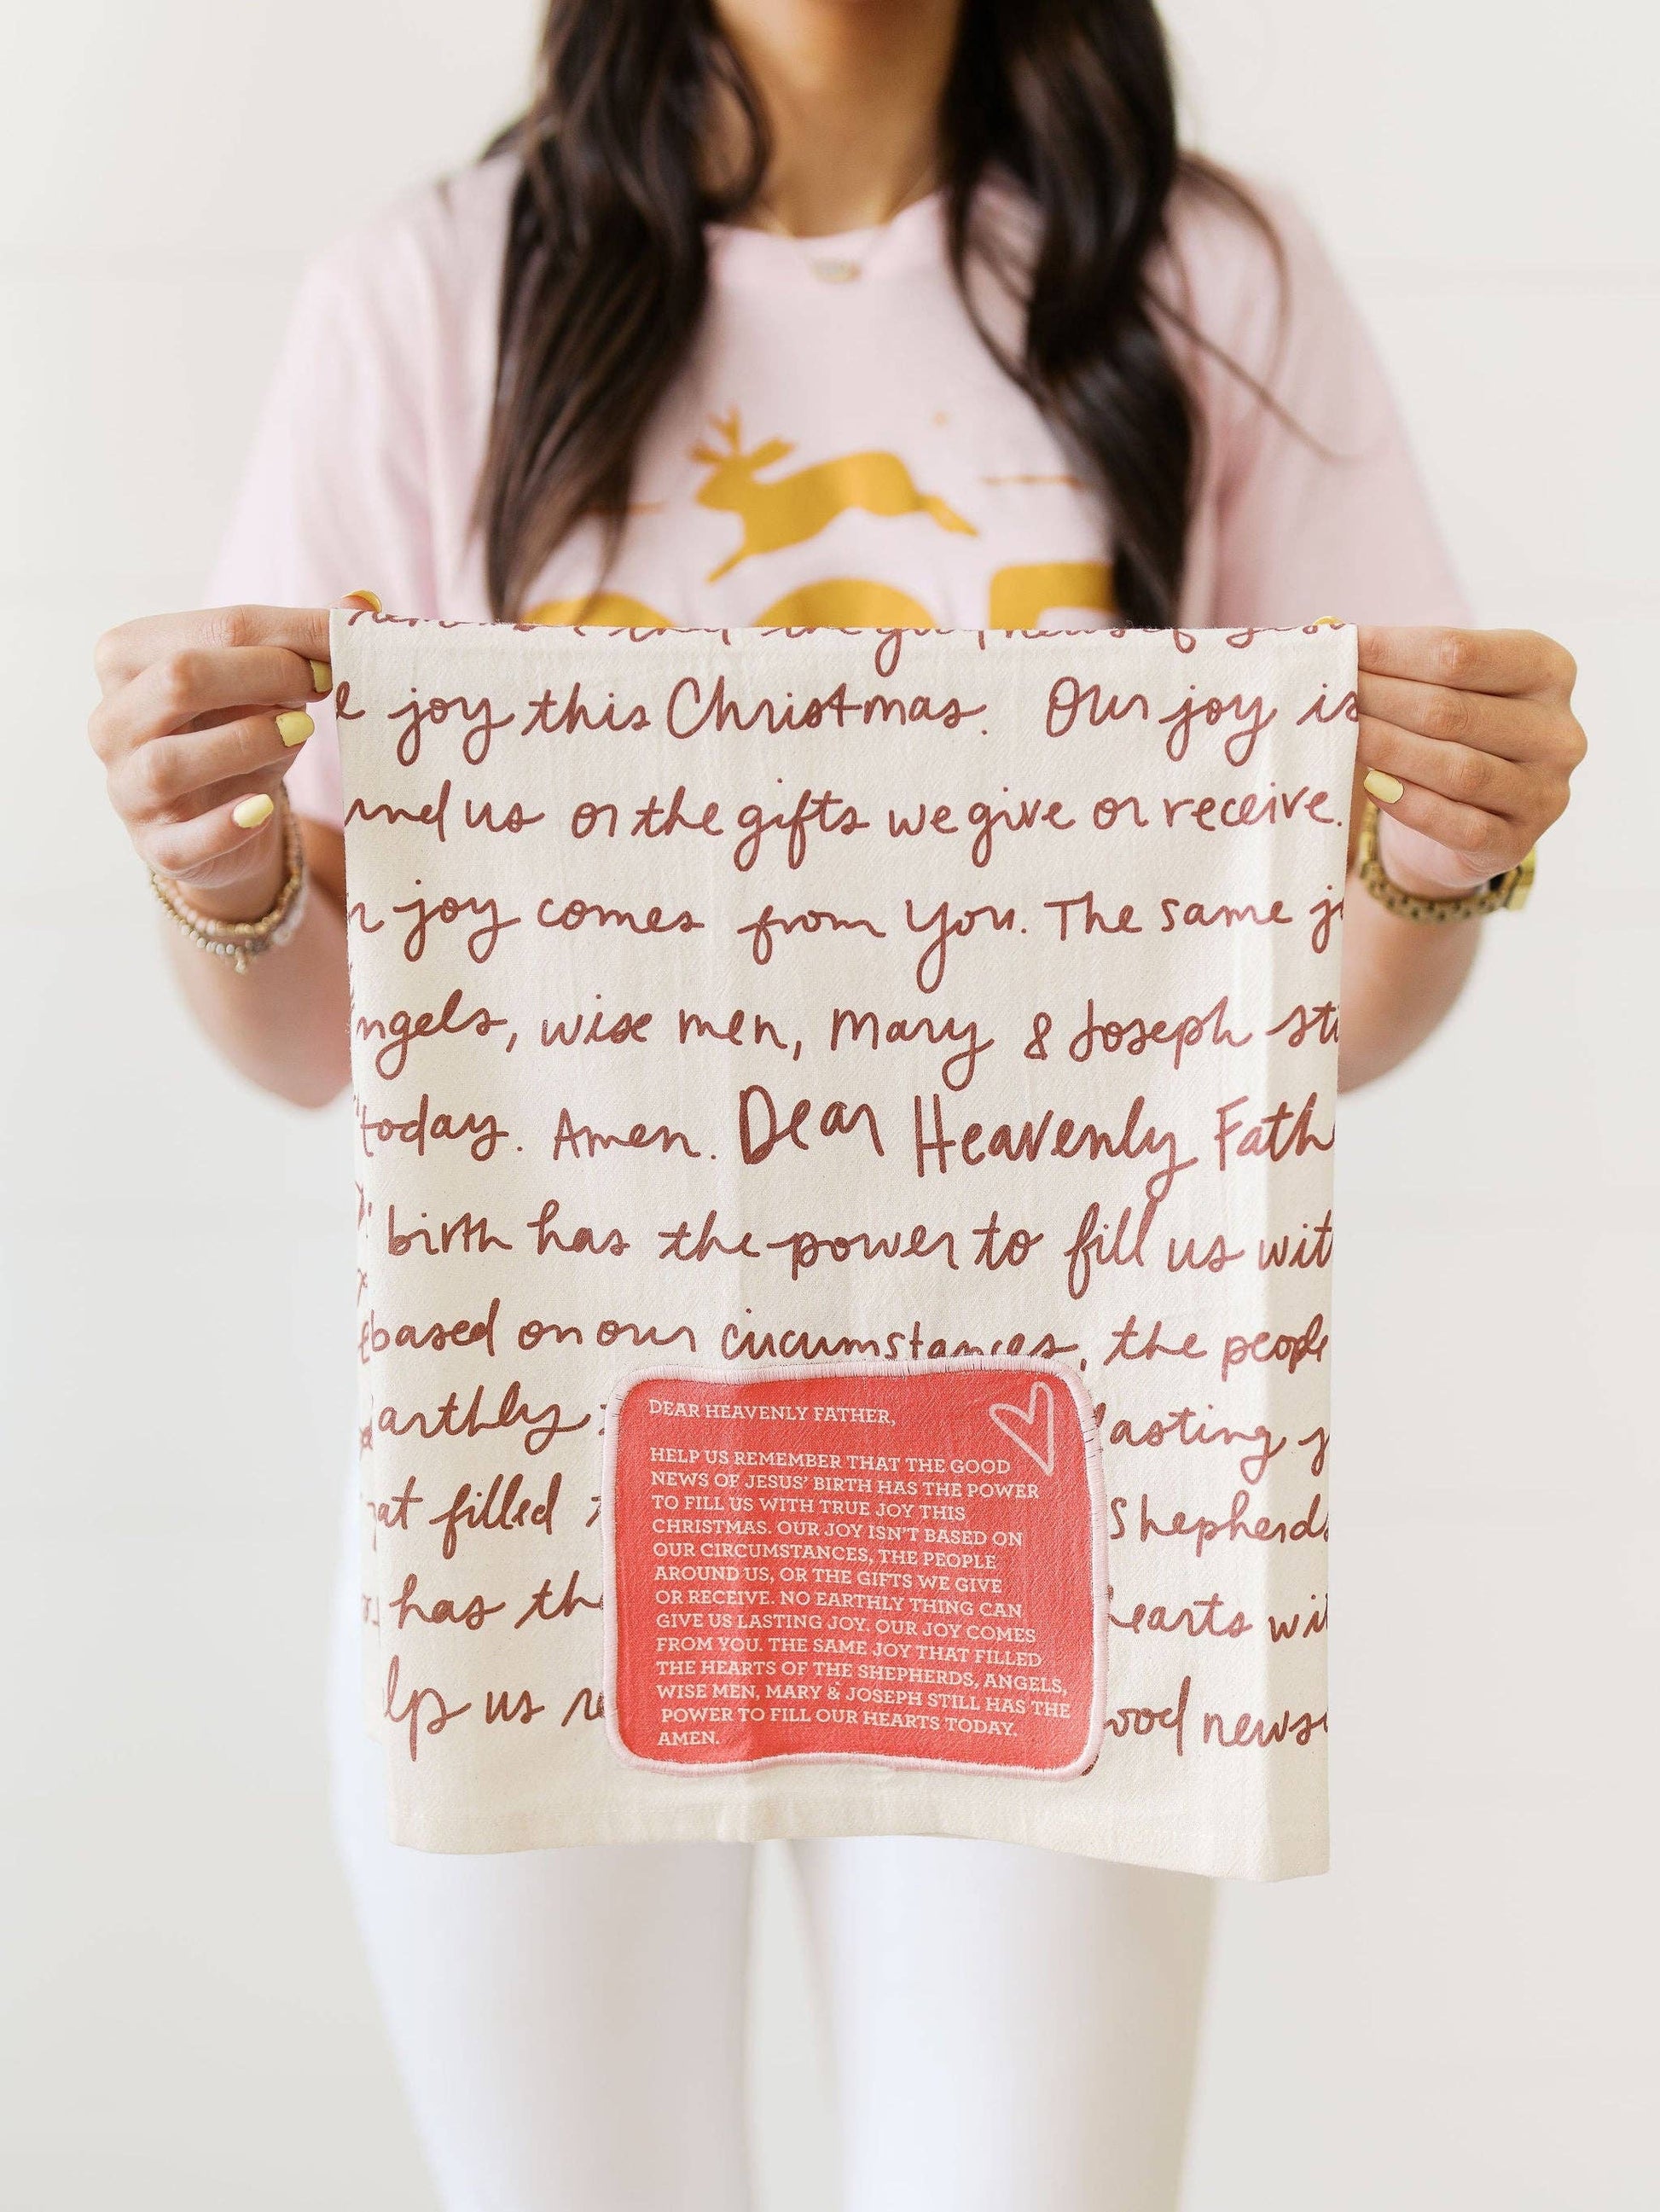 joy this Christmas. Our joy is
us or the gifts we give or receive.
joy comes from You. The same
ngels, wise men, Mary & Joseph sti
today. Amen. Dear Heavenly Fath
birth has the power to fill us wit
based on our circumstances, the people
arthly lasting
at filled Shepherds
has the hearts wi
lp us re ood news
DEAR HEAVENLY FATHER,
HELP US REMEMBER THAT THE GOOD
NEWS OF JESUS' BIRTH HAS THE POWER
TO FILL US WITH TRUE JOY THIS
CHRISTMAS. OUR JOY ISN'T BASED ON
OUR CIRCUMSTANCES, THE PEOPLE
AROUND US, OR THE GIFTS WE GIVE
OR RECEIVE. NO EARTHLY THING CAN
GIVE US LASTING JOY. OUR JOY COMES
FROM YOU. THE SAME JOY THAT FILLED
THE HEARTS OF THE SHEPHERDS, ANGELS,
WISE MEN, MARY & JOSEPH STILL HAS THE
POWER TO FILL OUR HEARTS TODAY.
AMEN.